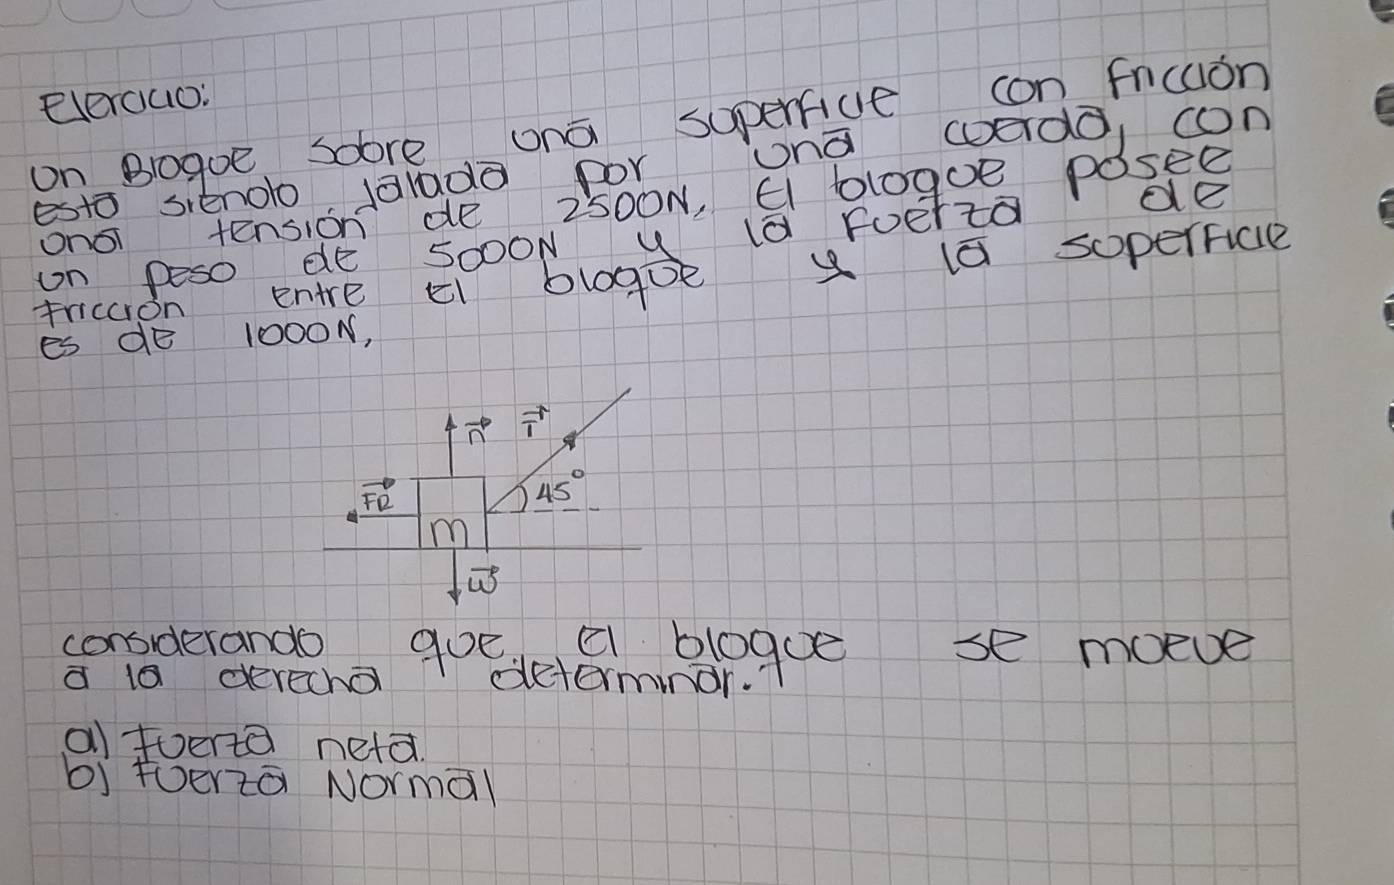 Ejercicio:
Un Bloque sobre una superficie con fricción
está siendo jalado por una cuerda, con
una tensión de 2500N, El bloque posee
un peso de 5000N y la fuerza de
fricción entre El bloque y la superficie
es de 1000N,
n T
FR 45°
m
w
considerando que el bloque se mueve
a la derecha determinar.
a) fuerza neta.
b) fuerza Normal